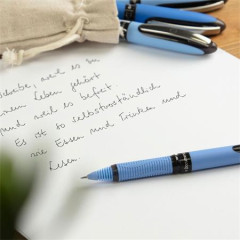 schreibe, weil es zu
meinem Leben gehört
und weil es befreit
Es ist so selbstverständlich
wie Essen und Trinken und
Lesen.